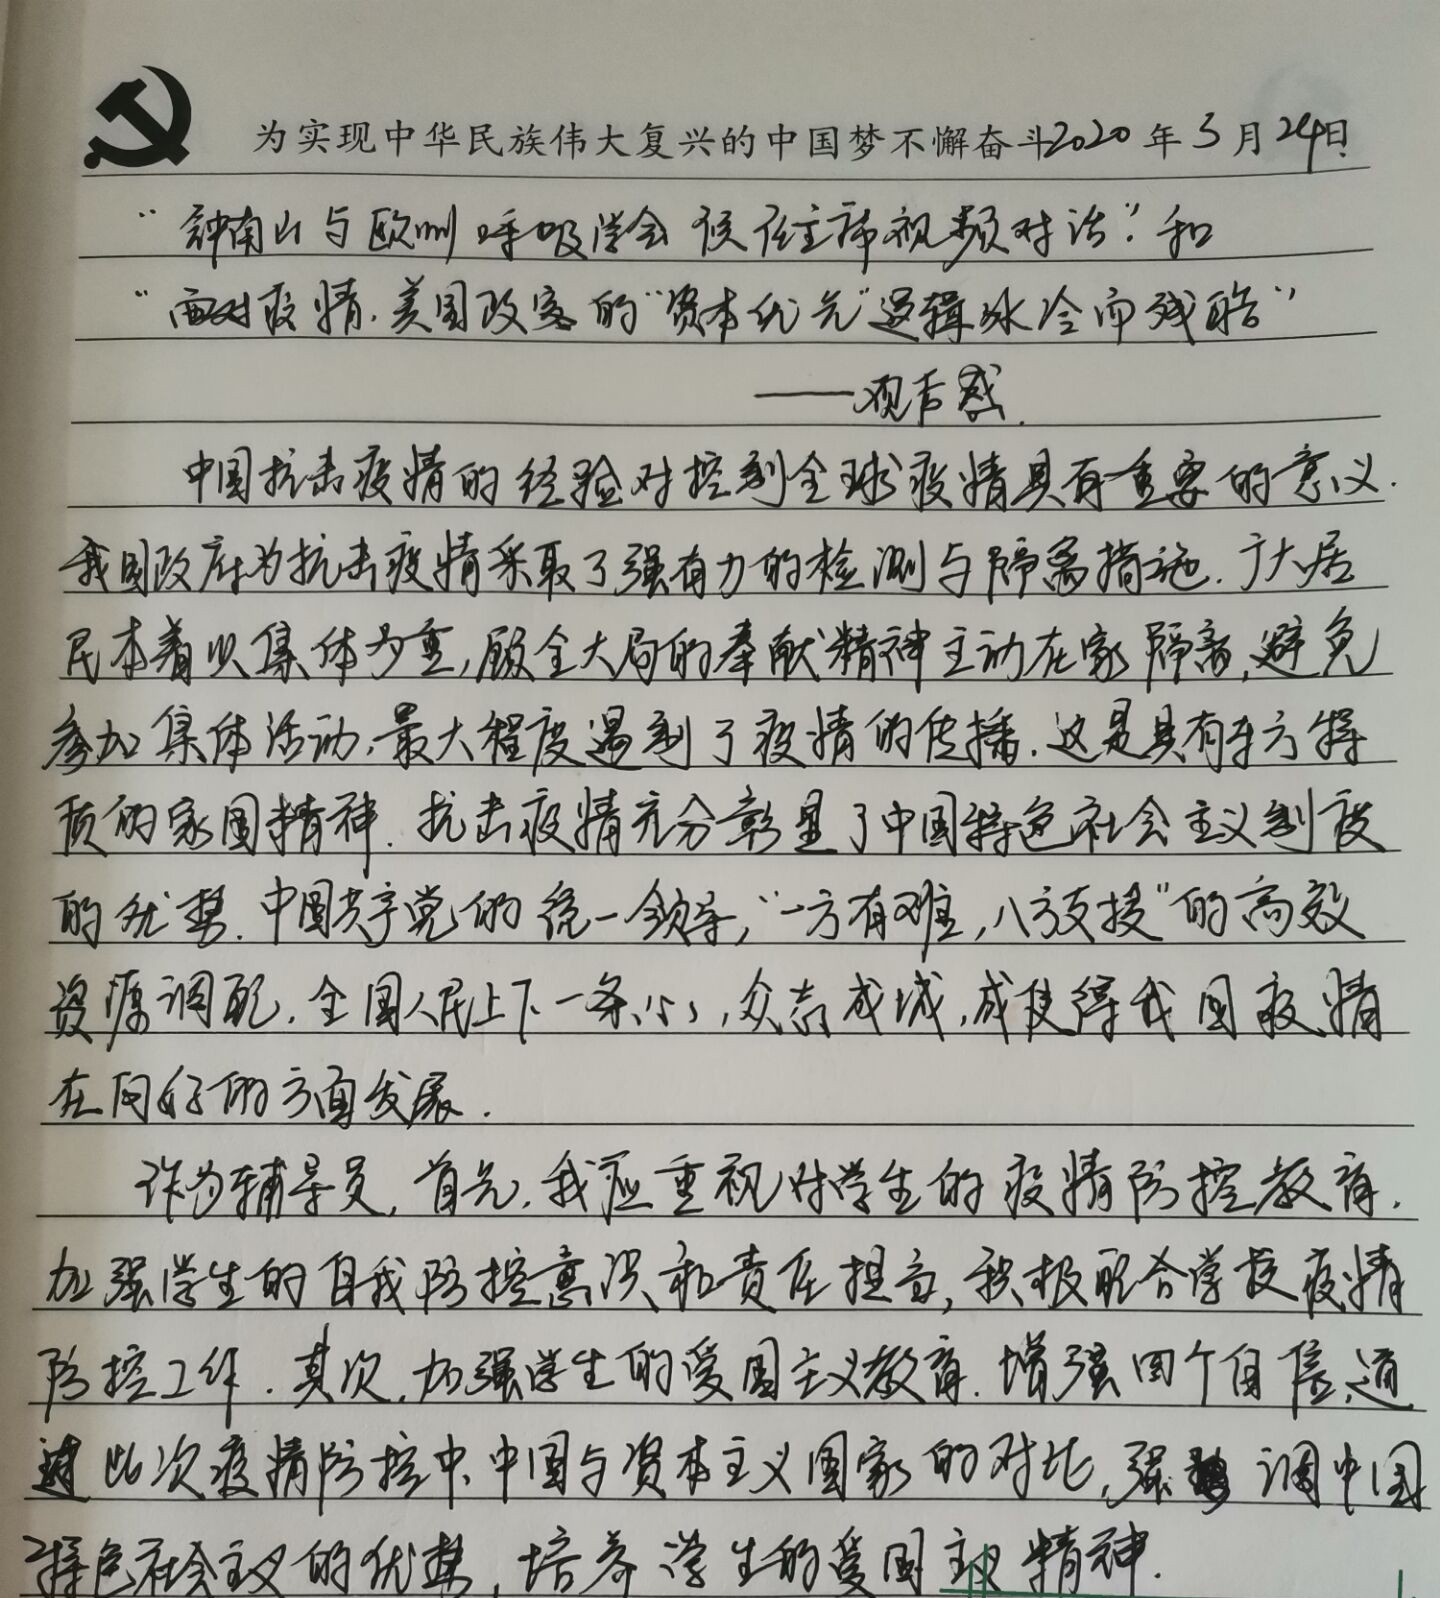 为实现中华民族伟大复兴的中国梦不懈奋斗2020年3月24日
"钟南山与欧洲呼吸学会候任主席视频对话"和
"面对疫情,美国政客的"资本优先"逻辑冰冷而残酷"
——观后感
中国抗击疫情的经验对控制全球疫情具有重要的意义.
我国政府为抗击疫情采取了强有力的检测与隔离措施.广大居
民本着以集体为重,顾全大局的奉献精神主动在家隔离,避免
参加集体活动,最大程度遏制了疫情的传播.这是具有东方特
质的家国精神.抗击疫情充分彰显了中国特色社会主义制度
的优势.中国共产党的统一领导,"一方有难,八方支援"的高效
资源调配,全国人民上下一条心,众志成城,成使得我国疫情
在向好的方面发展.
作为辅导员,首先,我应重视对学生的疫情防控教育,
加强学生的自我防控意识和责任担当,积极配合学校疫情
防控工作.其次,加强学生的爱国主义教育.增强四个自信,通
过此次疫情防控中,中国与资本主义国家的对比,强调中国
特色社会主义的优势,培养学生的爱国主义精神.